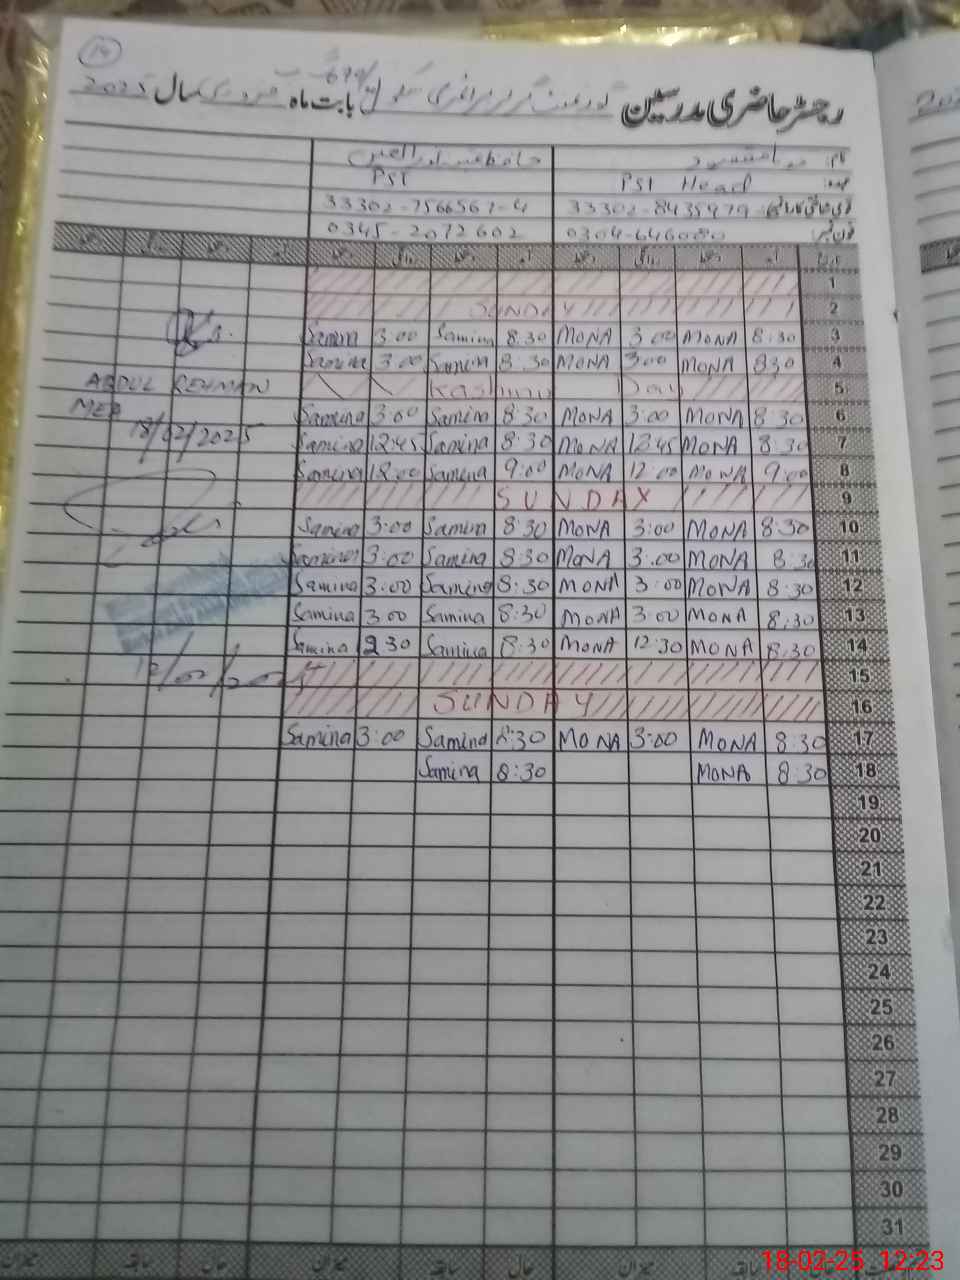 14
رجسٹر حاضری مدرسین گورنمنٹ گرلز پرائمری سکول بابت ماہ فروری سال 2025
نام:
عہدہ: PST Head PST
33302-8435979 33302-7566567-4
فون نمبر: 0304-646080 0345-2072602
1
2 SUNDAY
3 8:30 MONA 3:00 MONA 8:30 Samina 3:00 Samina
4 830 MONA 3:00 MONA 8:30 Samina 3:00 Samina
5 Kashmir Day
ABDUL REHMAN
6 8:30 MONA 3:00 MONA 8:30 Samina 3:00 Samina
MEA
7 8:30 MONA 12:45 MONA 8:30 Samina 12:45 Samina
18/02/2025
8 9:00 MONA 12:00 MONA 9:00 Samina 12:00 Samina
9 SUNDAY
10 8:30 MONA 3:00 MONA 8:30 Samina 3:00 Samina
11 8:30 MONA 3:00 MONA 8:30 Samina 3:00 Samina
12 8:30 MONA 3:00 MONA 8:30 Samina 3:00 Samina
13 8:30 MONA 3:00 MONA 8:30 Samina 3:00 Samina
14 8:30 MONA 12:30 MONA 8:30 Samina 230 Samina
15
16 SUNDAY
17 8:30 MONA 3:00 MONA 8:30 Samina 3:00 Samina
18 8:30 MONA 8:30 Samina
19
20
21
22
23
24
25
26
27
28
29
30
31
میزان سابقہ حال میزان سابقہ
18-02-25 12:23